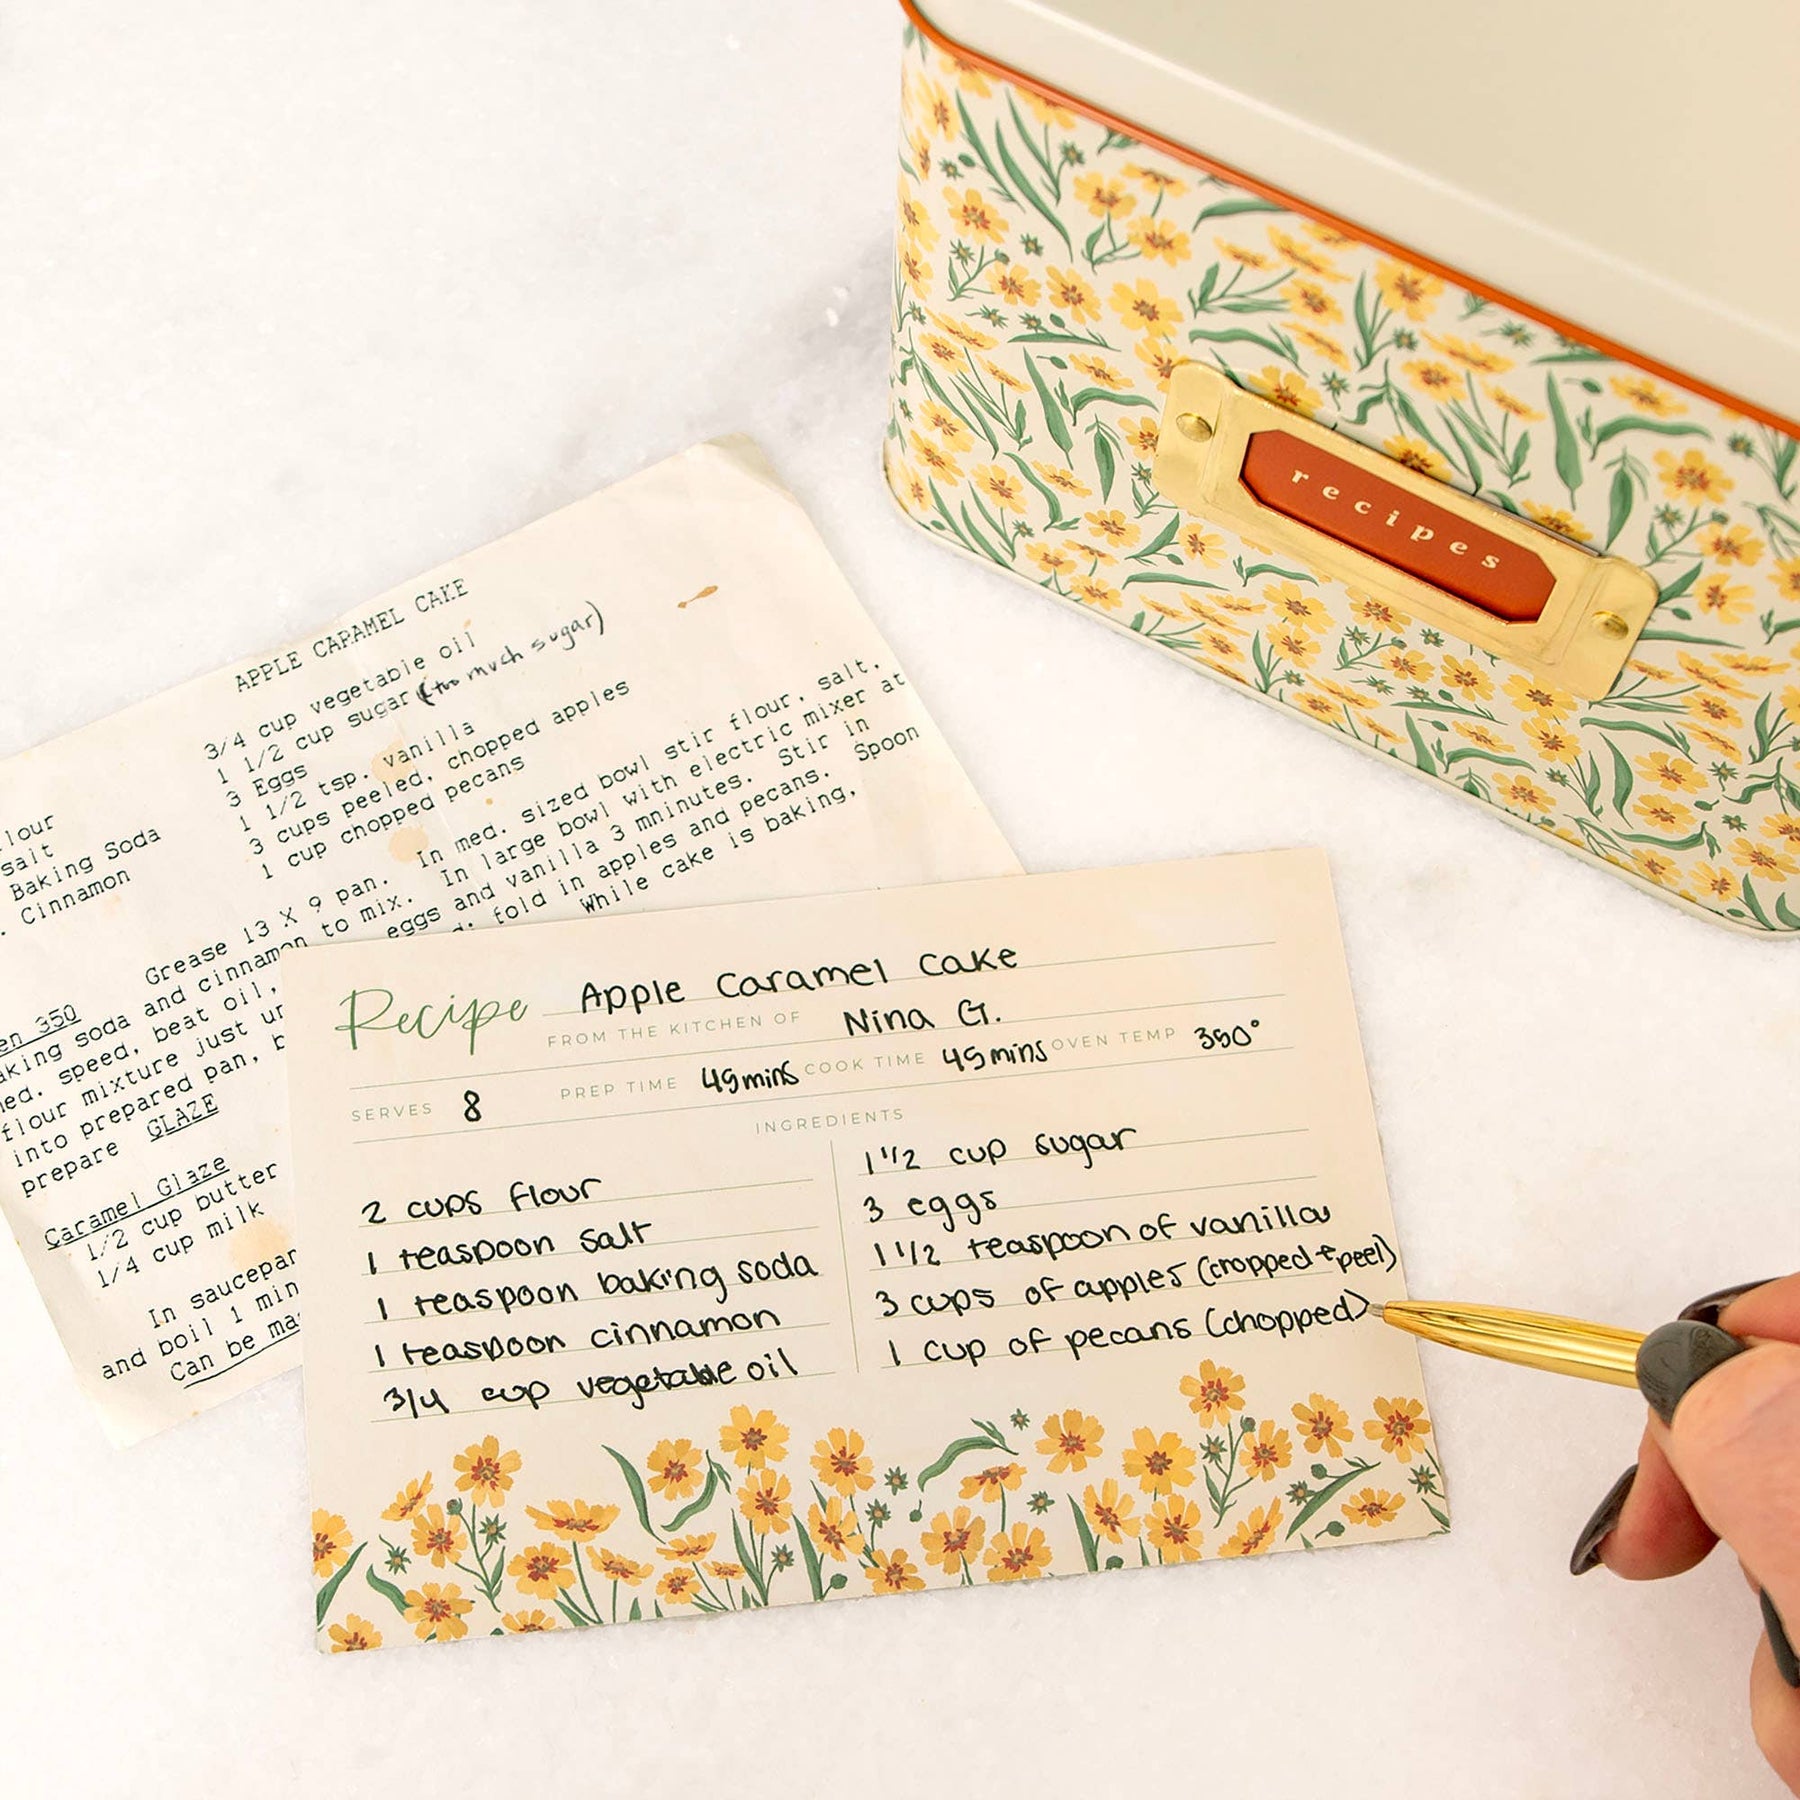 recipes
APPLE CARAMEL CAKE
3/4 cup vegetable oil
1 1/2 cup sugar (too much sugar)
3 Eggs
1 1/2 tsp. vanilla
3 cups peeled, chopped apples
1 cup chopped pecans
lour
salt
Baking Soda
. Cinnamon
Grease 13 X 9 pan. In med. sized bowl stir flour, salt,
en 350
aking soda and cinnamon to mix. In large bowl with electric mixer at
ed. speed, beat oil, eggs and vanilla 3 mninutes. Stir in
flour mixture just un d, fold in apples and pecans. Spoon
into prepared pan, b While cake is baking,
prepare GLAZE
Caramel Glaze
1/2 cup butter
1/4 cup milk
In saucepan
and boil 1 min
Can be ma
Recipe Apple Caramel Cake
FROM THE KITCHEN OF Nina G.
SERVES 8 PREP TIME 45mins COOK TIME 45mins OVEN TEMP 350°
INGREDIENTS
2 cups flour
1 teaspoon salt
1 teaspoon baking soda
1 teaspoon cinnamon
3/4 cup vegetable oil
1 1/2 cup sugar
3 eggs
1 1/2 teaspoon of vanilla
3 cups of apples (chopped + peel)
1 cup of pecans (chopped)